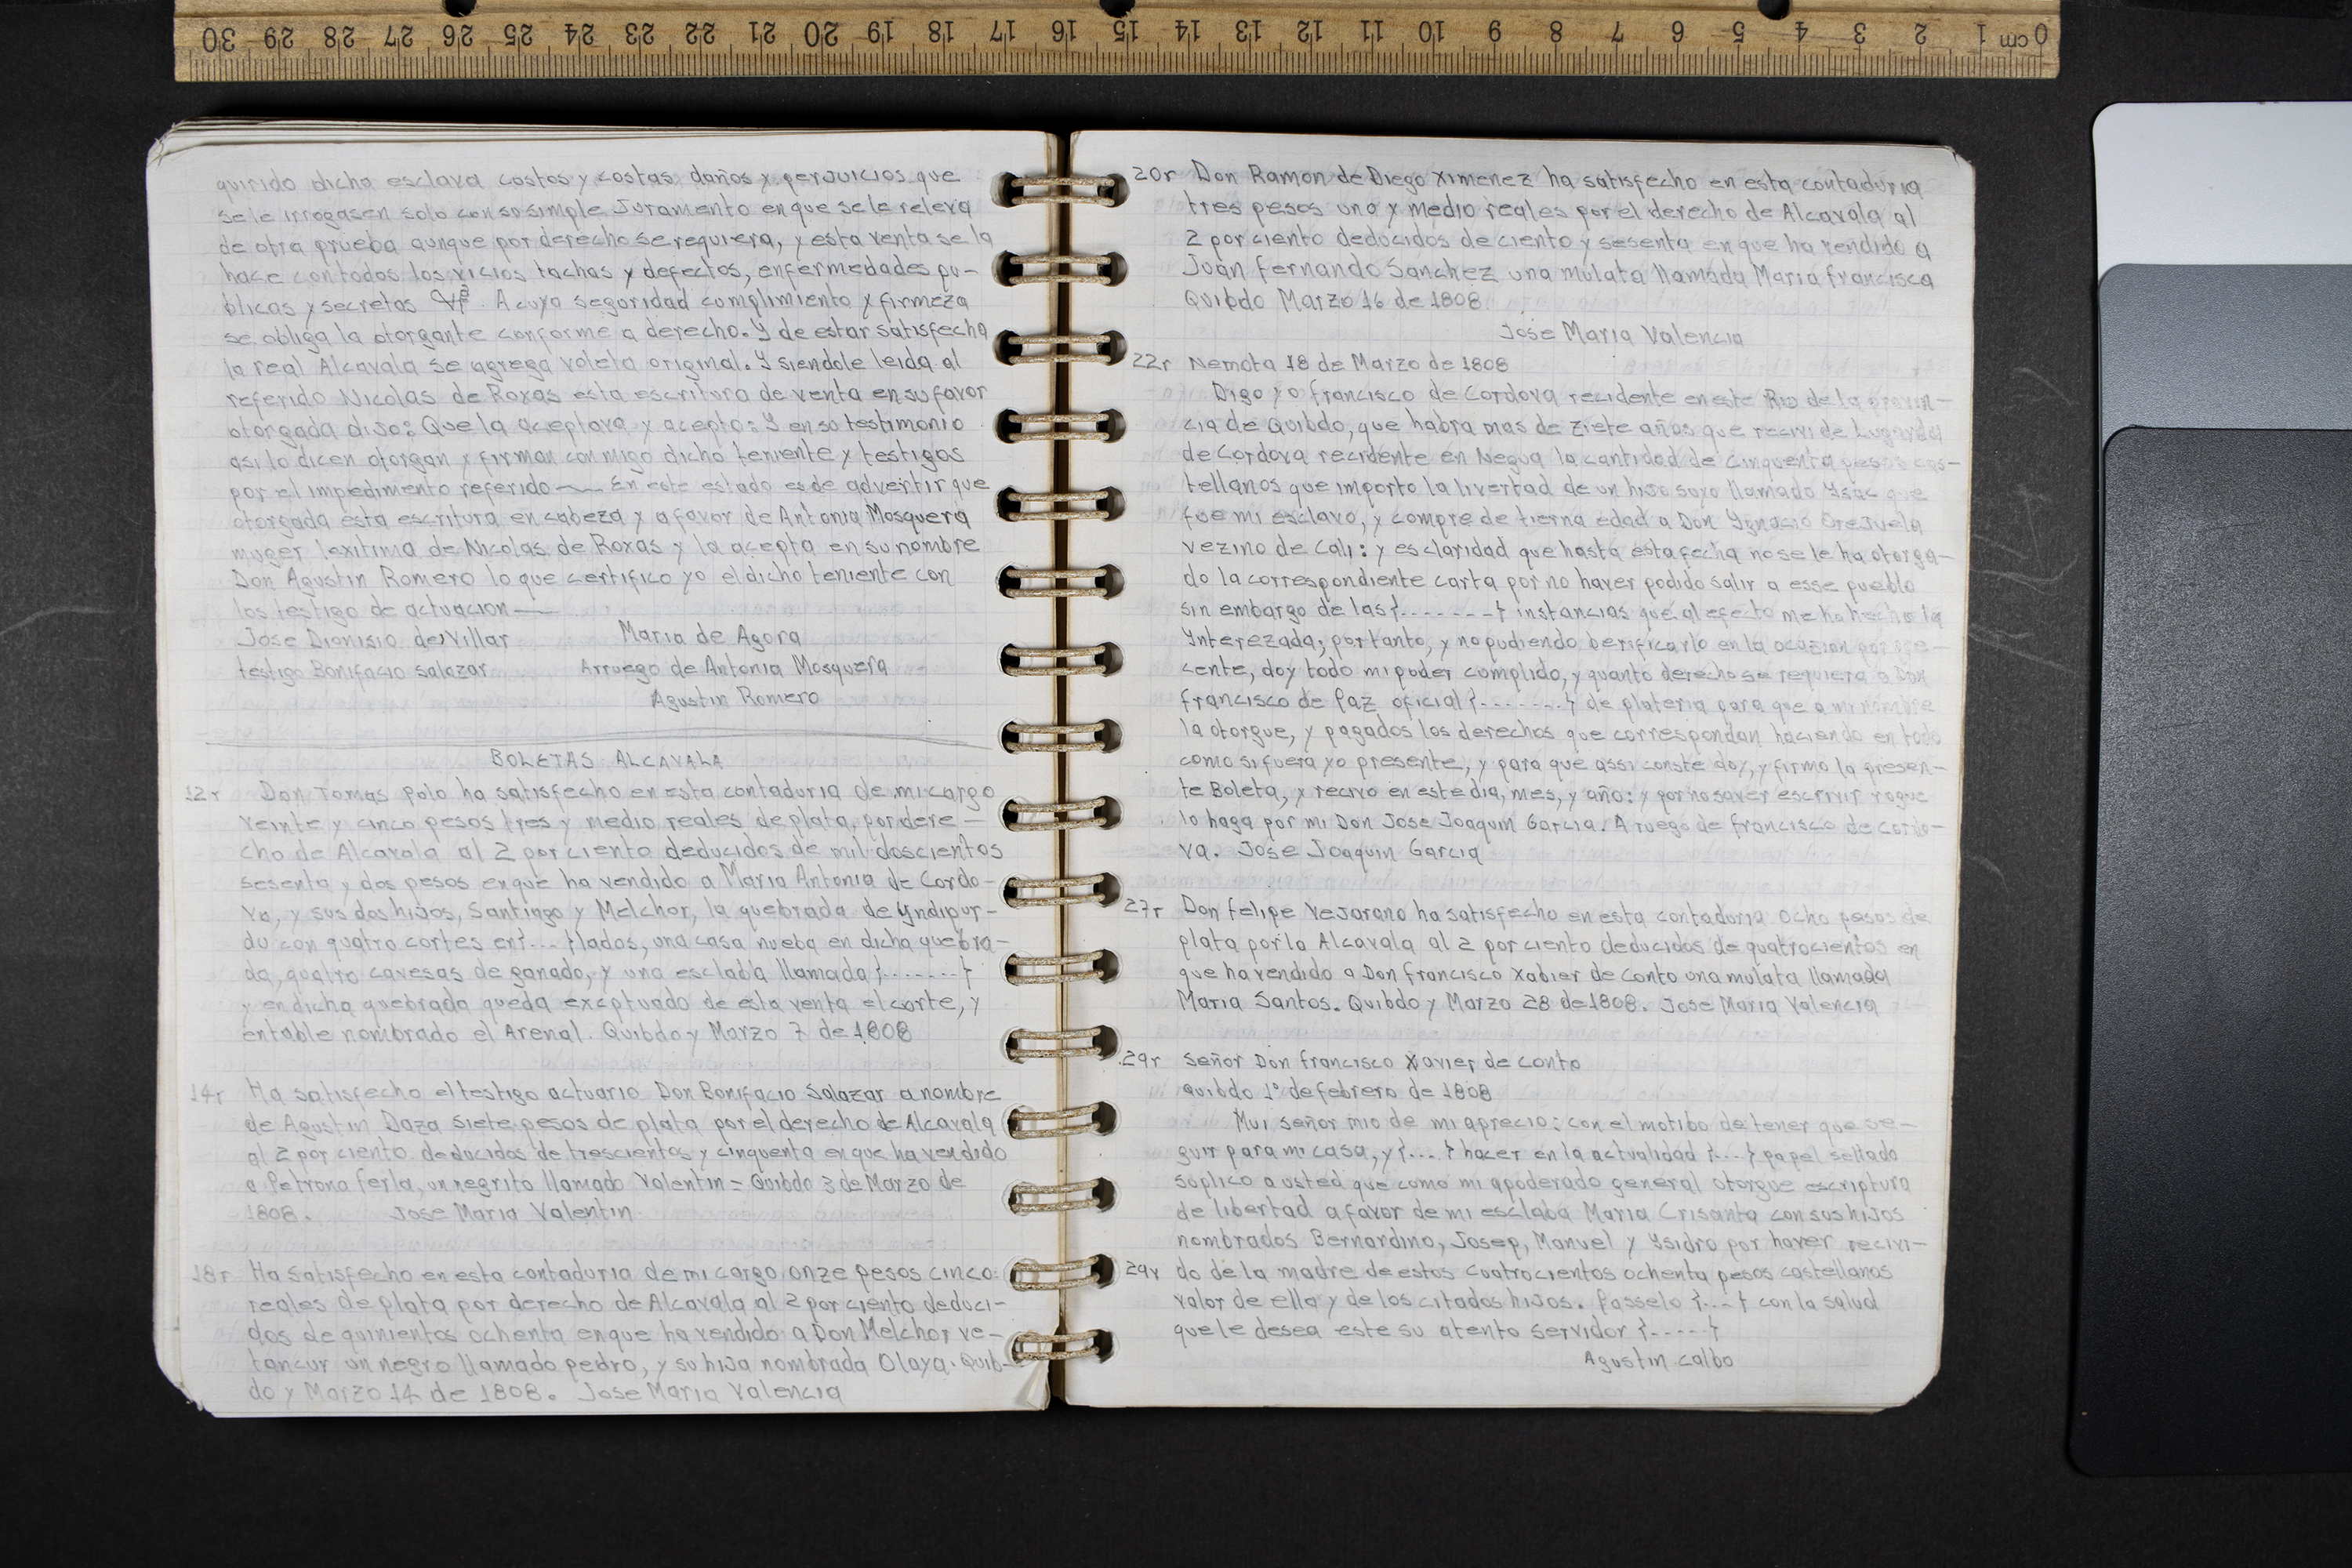 30 29 28 27 26 25 24 23 22 21 20 19 18 17 16 15 14 13 12 11 10 9 8 7 6 5 4 3 2 1 0 cm
quirido dicha esclava costos y costas daños y perjuicios que
se le irrogasen solo con so simple Juramento en que se le releva
de otra prueba aunque por derecho se requiera, y esta venta se la
hace con todos los vicios tachas y defectos, enfermedades pu-
blicas y secretas A cuya seguridad cumplimiento y firmeza
se obliga la otorgante conforme a derecho. Y de estar satisfecha
la real Alcavala se agrega voleta original. Y siendole leida al
referido Nicolas de Roxas esta escritura de venta en su favor
otorgada dijo: Que la aceptava y acepto: Y en so testimonio
asi lo dicen otorgan y firman con migo dicho teniente y testigos
por el impedimento referido — En este estado es de advertir que
otorgada esta escritura en cabeza y a favor de Antonia Mosquera
muger lexitima de Nicolas de Roxas y la acepta en su nombre
Don Agustin Romero lo que certifico yo el dicho teniente con
los testigo de actuacion —
Jose Dionisio de Villar Maria de Agora
testigo Bonifacio Salazar Arruego de Antonia Mosquera
Agustin Romero
BOLETAS ALCAVALA
12r Don Tomas Polo ha satisfecho en esta contaduria de mi cargo
veinte y cinco pesos tres y medio reales de plata, por dere-
cho de Alcavala al 2 por ciento deducidos de mil doscientos
sesenta y dos pesos en que ha vendido a Maria Antonia de Cordo-
va, y sus dos hijos, Santiago y Melchor, la quebrada de Yndipur-
du con quatro cortes en {...} lados, una casa nueba en dicha quebra-
da, quatro cavesas de ganado, y una esclaba llamada {.......}
y en dicha quebrada queda exceptuado de esta venta el corte, y
entable nombrado el Arenal. Quibdo y Marzo 7 de 1808
14r Ha satisfecho el testigo actuario Don Bonifacio Salazar a nombre
de Agustin Daza siete pesos de plata por el derecho de Alcavala
al 2 por ciento deducidos de trescientos y cinquenta en que ha vendido
a Petrona ferla, un negrito llamado Valentin = Quibdo 3 de Marzo de
1808. Jose Maria Valentin
18r Ha satisfecho en esta contaduria de mi cargo onze pesos cinco
reales de plata por derecho de Alcavala al 2 por ciento deduci-
dos de quinientos ochenta en que ha vendido a Don Melchor ve-
tancur un negro llamado pedro, y su hija nombrada Olaya. Quib-
do y Marzo 14 de 1808. Jose Maria Valencia
20r Don Ramon de Diego Ximenez ha satisfecho en esta contaduria
tres pesos uno y medio reales por el derecho de Alcavala al
2 por ciento deducidos de ciento y sesenta en que ha vendido a
Juan Fernando Sanchez una mulata llamada Maria francisca
Quibdo Marzo 16 de 1808
Jose Maria Valencia
22r Nemota 18 de Marzo de 1808
Digo yo francisco de Cordova recidente en este Rio de la provin-
cia de Quibdo, que habra mas de ziete años que recivi de Lugarda
de Cordova recidente en Negua la cantidad de cinquenta pesos cas-
tellanos que importo la livertad de un hijo suyo llamado Ysac que
fue mi esclavo, y compre de tierna edad a Don Ygnacio Orejuela
vezino de Cali: y es claridad que hasta esta fecha no se le ha otorga-
do la correspondiente carta por no haver podido salir a esse pueblo
sin embargo de las {.......} instancias que al efecto me ha hecho la
Ynterezada; por tanto, y no pudiendo berificarlo en la ocazion por pre-
cente, doy todo mi poder cumplido, y quanto derecho se requiera a Don
francisco de Paz oficial {.......} de plateria para que a mi nombre
la otorgue, y pagados los derechos que correspondan haciendo en todo
como si fuera yo presente, y para que assi conste doy, y firmo la presen-
te Boleta, y recivo en este dia, mes, y año: y por no saver escrivir rogue
lo haga por mi Don Jose Joaquin Garcia. A ruego de francisco de Cordo-
va. Jose Joaquin Garcia
27r Don felipe Vejarano ha satisfecho en esta contaduria Ocho pesos de
plata por la Alcavala al 2 por ciento deducidos de quatrocientos en
que ha vendido a Don francisco Xabier de Conto una mulata llamada
Maria Santos. Quibdo y Marzo 28 de 1808. Jose Maria Valencia
29r Señor Don francisco Xavier de Conto
Quibdo 1° de febrero de 1808
Mui señor mio de mi aprecio: con el motibo de tener que se-
guir para mi casa, y {...} hacer en la actualidad {...} papel sellado
soplico a usted que como mi apoderado general otorgue escriptura
de libertad a favor de mi esclaba Maria Crisanta con sus hijos
nombrados Bernardino, Josep, Manuel y Ysidro por haver recivi-
29v do de la madre de estos cuatrocientos ochenta pesos castellanos
valor de ella y de los citados hijos. Passelo {...} con la salud
que le desea este su atento servidor {.....}
Agustin calbo